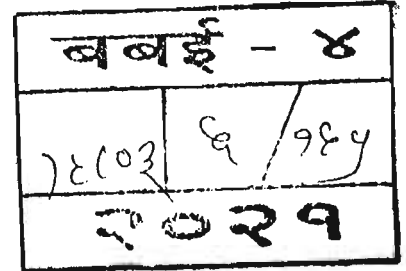 बबई - ४
१६८०३ ६ / १६५
२०२१